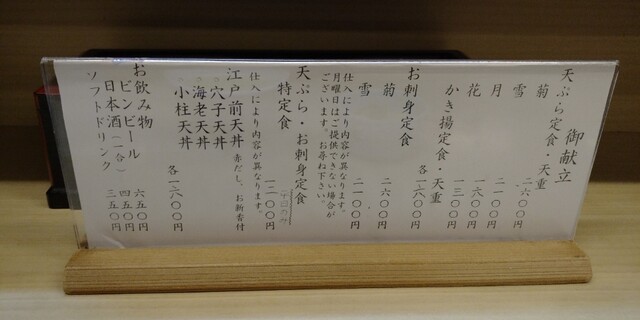 御献立
天ぷら定食・天重
菊 二六〇〇円
雪 二一〇〇円
月 一六〇〇円
花 一三〇〇円
かき揚定食・天重
各一六〇〇円
お刺身定食
菊 二六〇〇円
雪 二一〇〇円
仕入により内容が異なります。
月曜日はご提供できない場合が
ございます。お尋ね下さい。
天ぷら・お刺身定食
特定食 一二〇〇円
平日のみ
仕入により内容が異なります。
江戸前天丼 赤だし、お新香付
・穴子天丼
・海老天丼
・小柱天丼
各一六〇〇円
お飲み物
ビンビール 六五〇円
日本酒(一合) 四五〇円
ソフトドリンク 三五〇円